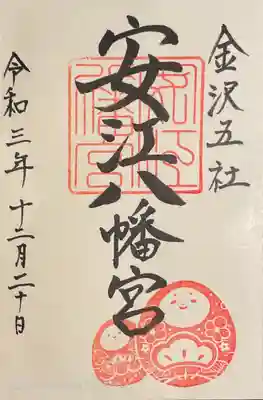 金沢五社
安江八幡宮
令和三年十二月二十日